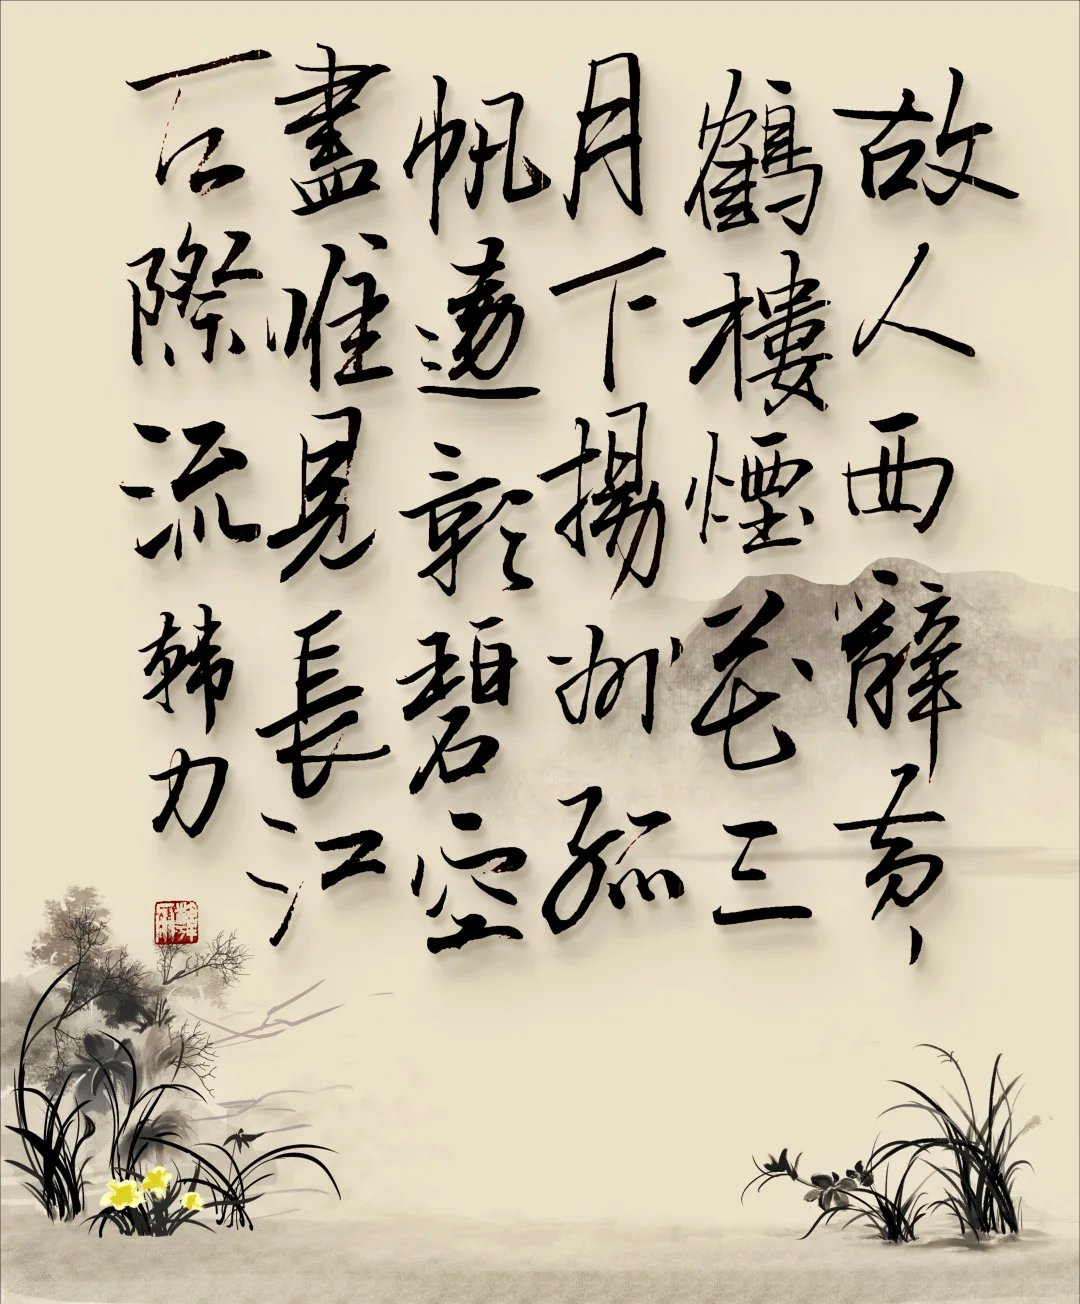 故人西辭黃
鶴樓煙花三
月下揚州孤
帆遠影碧空
盡惟見長江
天際流 韩力